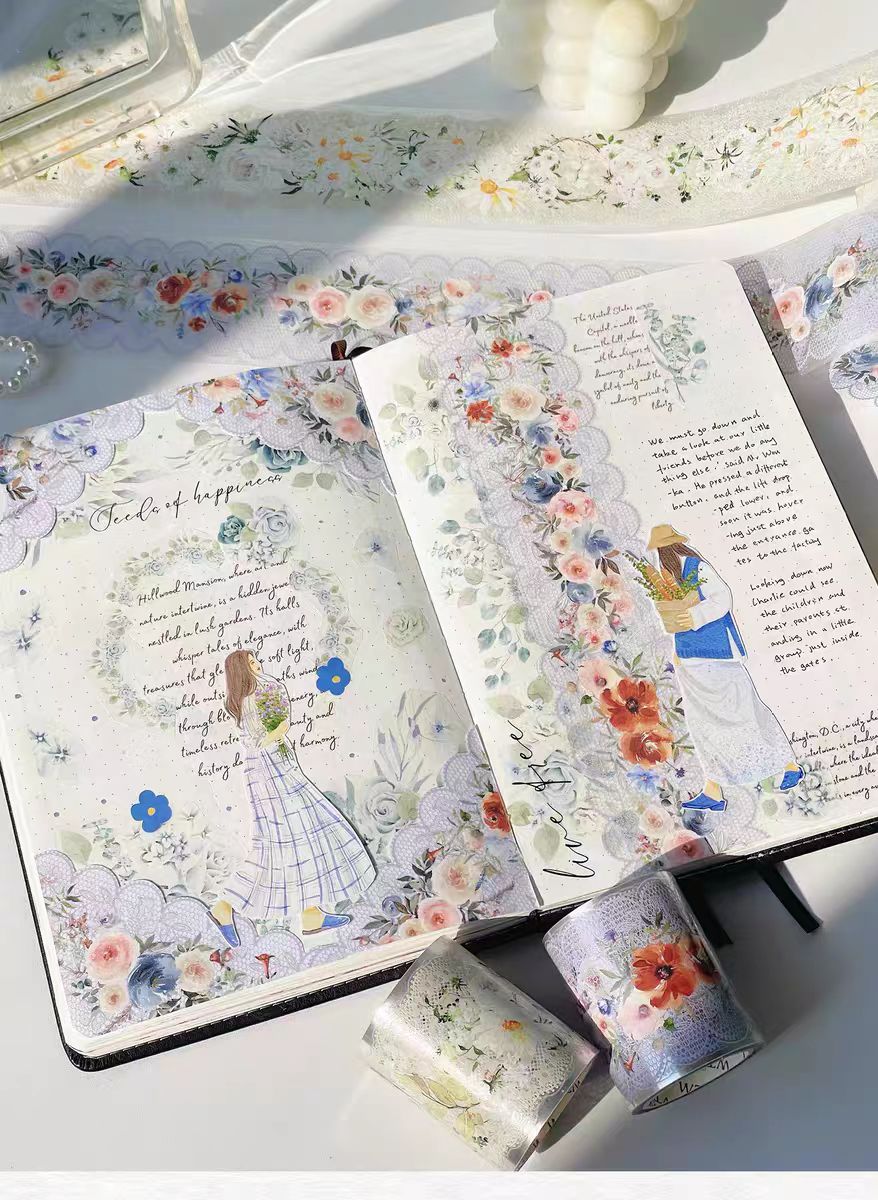 Seeds of happiness
Hillwood Mansion, where art and
nature intertwine, is a hidden jewel
nestled in lush gardens. Its halls
whisper tales of elegance, with
treasures that soft light,
while outsi
through
timeless harmony.
history
live free
The United States
Capitol, a noble
beacon on the hill, echoes
with the whispers of
democracy, its dome a
symbol of unity and the
enduring pursuit of
liberty.
"We must go down and
take a look at our little
friends before we do any
thing else." said Mr Won
-ka. He pressed a different
button, and the lift drop
-ped lower, and
soon it was hover
-ing just above
the entrance ga
tes to the factory
Looking down now
Charlie could see
the children and
their parents st
anding in a little
group just inside
the gates.
D.C., a city
intertwine, is a
where the
stone and the
in every